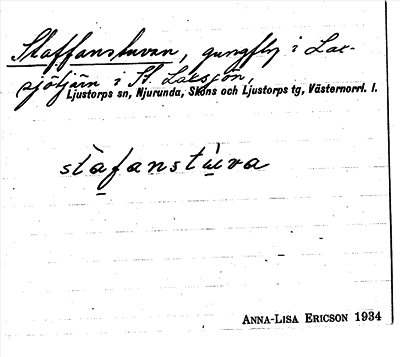 Staffanstuvan, gungfly i Lax-
sjötjärn i St. Laxsjön,
Ljustorps sn, Njurunda, Sköns och Ljustorps tg, Västernorrl. l.
stàfanstùva
ANNA-LISA ERICSON 1934